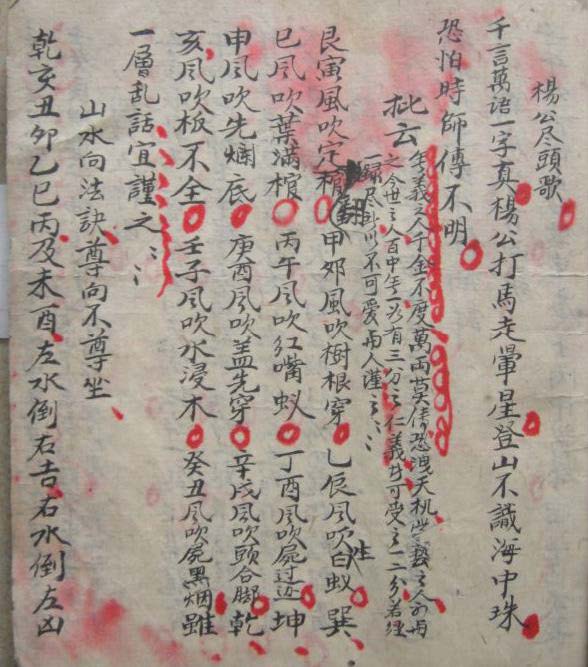 楊公尽頭歌
千言萬語一字真楊公打馬走暈星登山不識海中珠
恐怕時師傳不明
批云
無義之人千金不度萬両莫傳恐洩天机此藝之人不与
之今世之人百中無一以有三分之仁義井可受之一二分若経
尽卦以不可愛両人謹之
艮寅風吹定棺翻甲卯風吹樹根穿乙辰風吹白蚁巽
巳風吹葉满棺丙午風吹红嘴蚁丁酉風吹屍过边坤
申風吹先爛底庚酉風吹盖先穿辛戌風吹頭合脚乾
亥風吹板不全壬子風吹水浸木癸丑風吹屍黑烟雖
一層乱話宜謹之
山水向法訣尊向不尊坐
乾亥丑卯乙巳丙及未酉左水倒右吉右水倒左凶